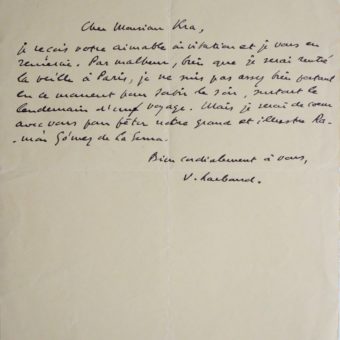 Cher Monsieur Kra,
Je reçois votre aimable invitation et je vous en
remercie. Par malheur, bien que je serai rentré
la veille à Paris, je ne suis pas assez bien portant
en ce moment pour sortir le soir, surtout le
lendemain d'un voyage. Mais je serai de cœur
avec vous pour fêter notre grand et illustre Ra-
món Gómez de la Serna.
Bien cordialement à vous,
V. Larbaud.